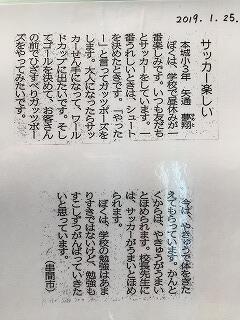 2019.1.25.
サッカー楽しい
本城小3年 矢通 夢翔
ぼくは、学校で昼休みが一
番楽しみです。いつも友だち
とサッカーをしています。一
番うれしいときは、シュート
を決めたときです。「やった
ー」と言ってガッツポーズを
します。大人になったらサッ
カーせん手になって、ワール
ドカップに出たいです。そし
てゴールを決めて、お客さん
の前でひざすべりガッツポー
ズをやってみたいです。
今は、やきゅうで体をきた
えてもらっています。かんと
くからは、やきゅうがうまい
とほめられます。校長先生に
は、サッカーがうまいとほめ
られます。
ぼくは、学校の勉強はあま
りすきではないけど、勉強も
すこしずつがんばっていきた
いと思っています。
(串間市)